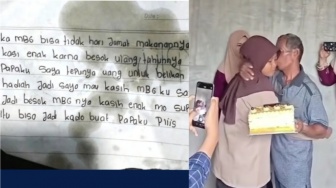 ka MBG bisa tidak hari Jumat makanannya
kasi enak karna besok ulang tahunnya
Papaku saya tepunya uang untuk belikan
hadiah Jadi saya mau kasih MBG ku sa
Jadi besok MBG nya kasih enak no sup
itu bisa jadi kado buat Papaku. Plis